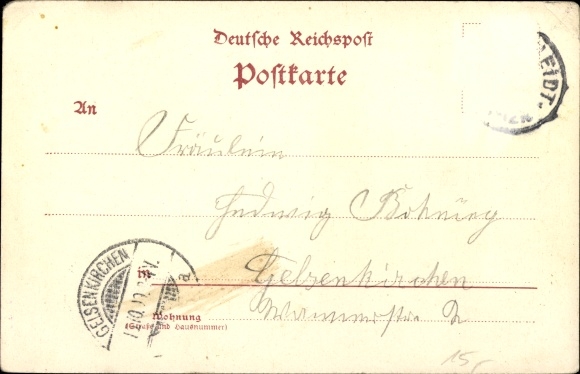 Deutsche Reichspost
Postkarte
EIDT.
An
Fräulein
Hedwig
GELSENKIRCHEN
in Gelsenkirchen
a
Wohnung
(Straße und Hausnummer)
15,-